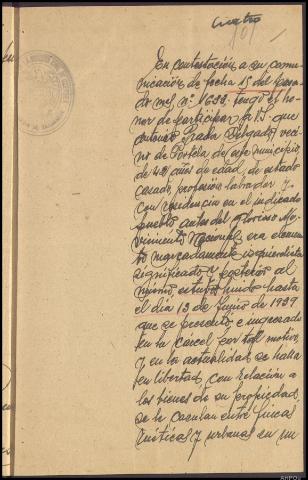 Cuatro
En contestación a su comu-
nicación de fecha 15 del pasa-
do mes nº 1698. tengo el ho-
nor de participar a V.S. que
Antonio Prada Delgado, veci-
no de Portela de este municipio,
de 42 años de edad, de estado
casado, profesión labrador y
con residencia en el indicado
pueblo antes del Glorioso Mo-
vimiento Nacional, era elemen-
to marcadamente izquierdista
significado y posterior al
mismo, estuvo huido hasta
el día 13 de Junio de 1939
que se presentó e ingresado
en la cárcel por tal motivo,
y en la actualidad se halla
en libertad, con relación a
los bienes de su propiedad,
se le calculan entre fincas
rústicas y urbanas en un